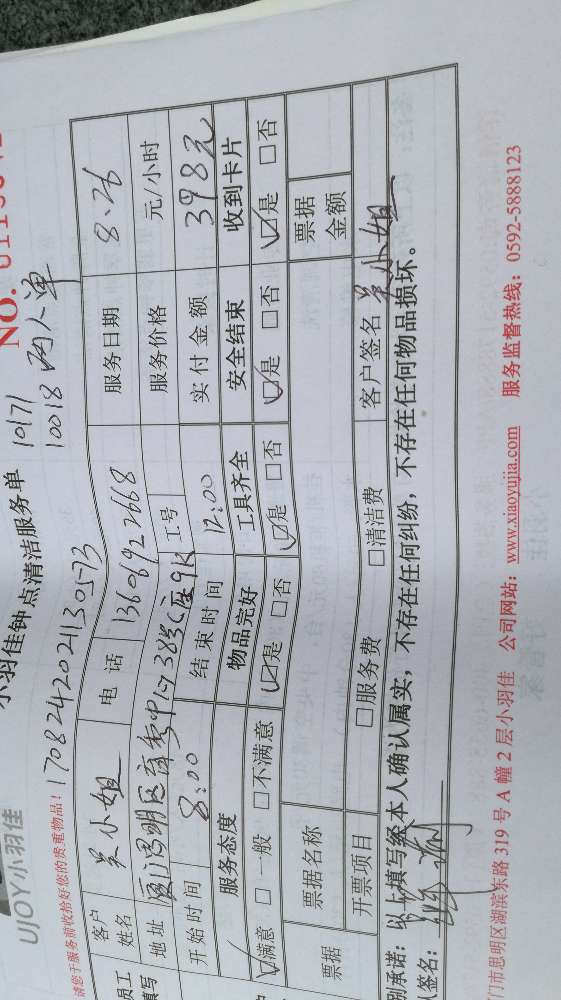 UJOY小羽佳
小羽佳钟点清洁服务单
10171
NO.
10018 两人单
请您于服务前收拾好您的贵重物品!
170824202411305-73
客户姓名 吴小姐 电话 13606922668 服务日期 8.26
地址 厦门思明区商务中心38号C座9K 工号 服务价格 元/小时
开始时间 8:00 结束时间 12:00 实付金额 398元
服务态度 物品完好 工具齐全 安全结束 收到卡片
☑满意 □一般 □不满意 ☑是 □否 ☑是 □否 ☑是 □否 ☑是 □否
票据 票据名称 票据金额
开票项目 □服务费 □清洁费 客户签名 吴小姐
别承诺:以上填写经本人确认属实,不存在任何纠纷,不存在任何物品损坏。
签名:
门市思明区湖滨东路 319 号 A 幢 2 层小羽佳 公司网站:www.xiaoyujia.com 服务监督热线:0592-5888123